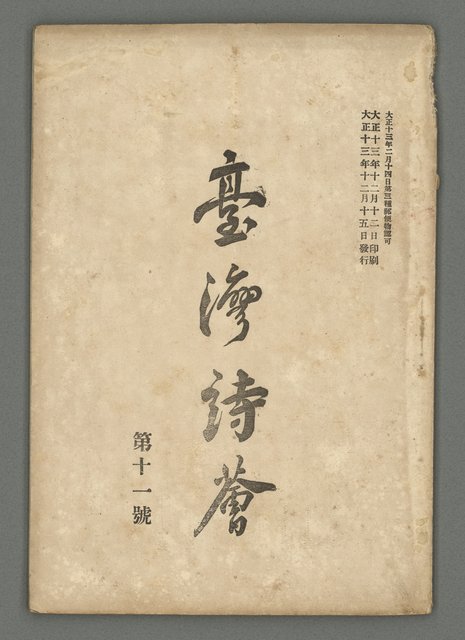 大正十三年二月十四日第三種郵便物認可
大正十三年十二月十二日印刷
大正十三年十二月十五日發行
臺灣詩薈
第十一號